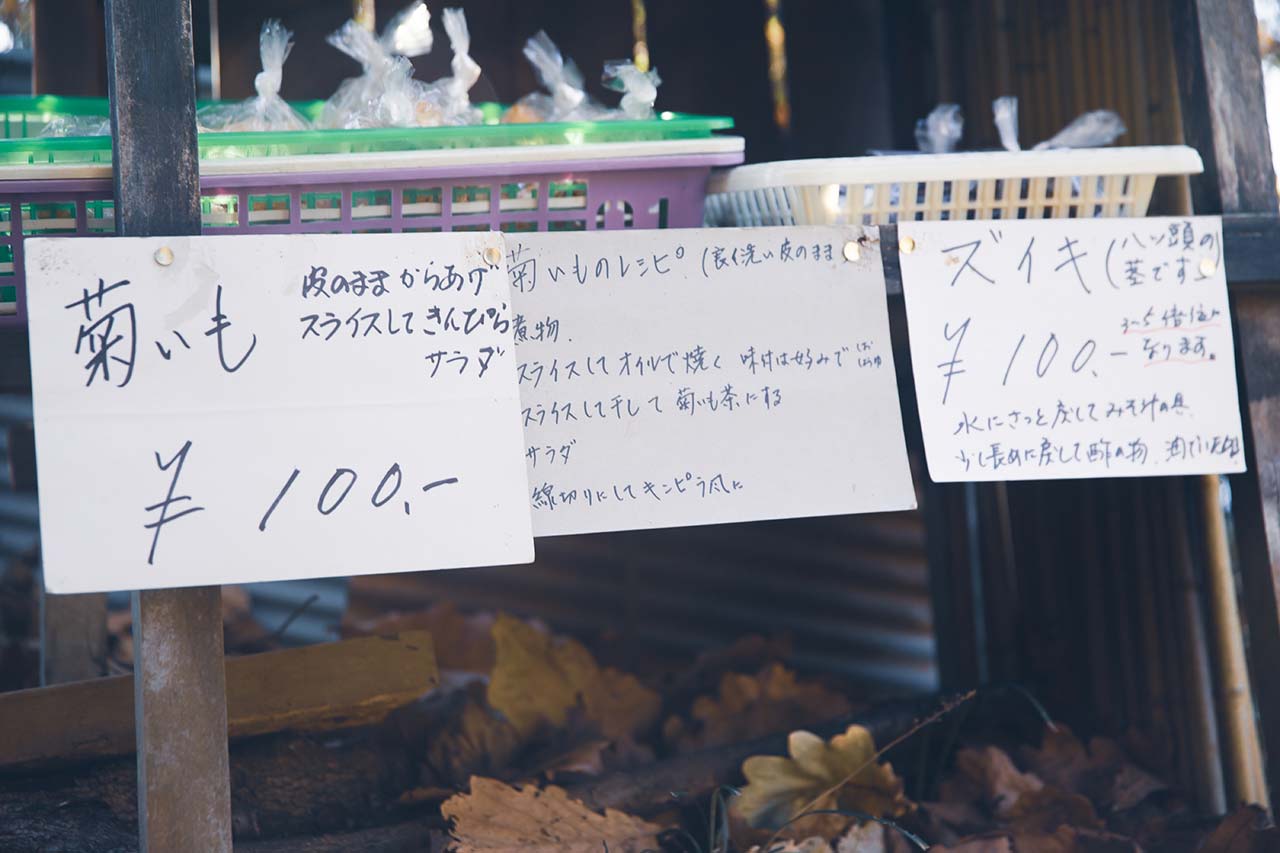 菊いも
皮のままからあげ
スライスしてきんぴら
サラダ
¥100.-
菊いものレシピ (良く洗い皮のまま
煮物.
スライスしてオイルで焼く 味付は好みで
スライスし干して 菊いも茶にする
サラダ
線切りにしてキンピラ風に
ズイキ(八ツ頭の
茎です)
¥100.-
3~5倍位に
なります。
水にさっと戻してみそ汁の具
少し長めに戻して酢の物、油で